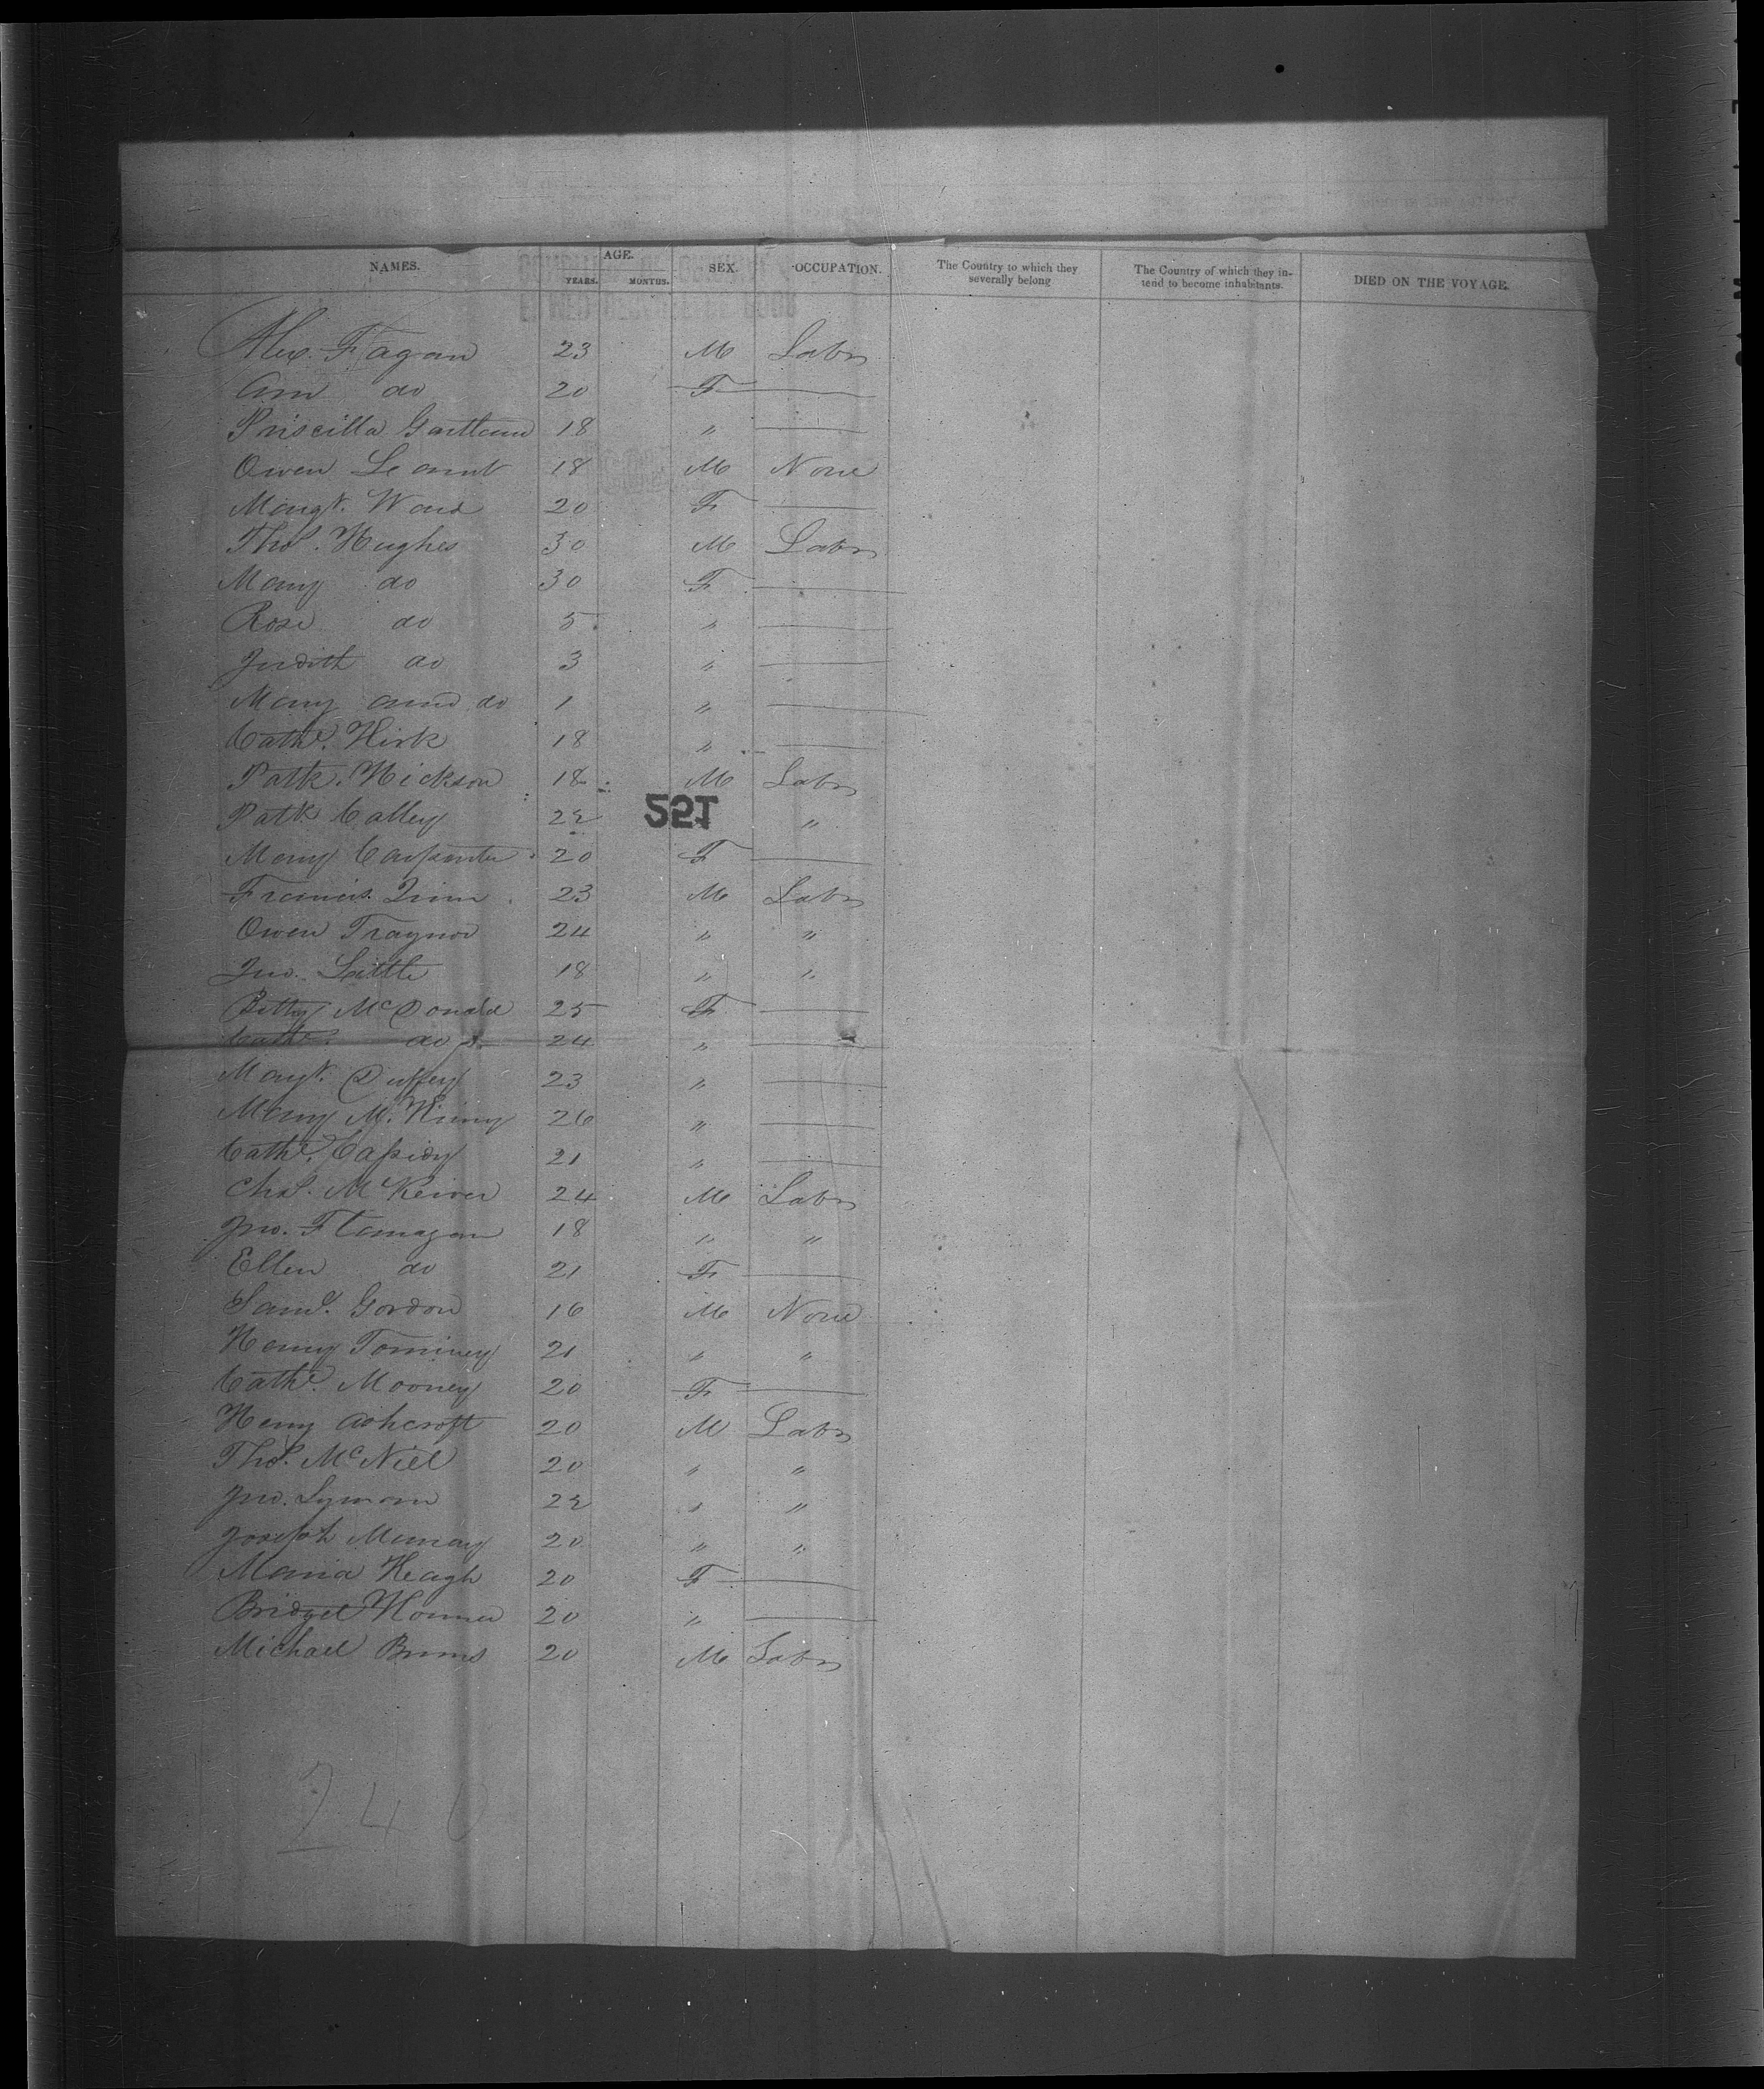 NAMES. AGE. YEARS. MONTHS. SEX. OCCUPATION. The Country to which they severally belong The Country of which they intend to become inhabitants. DIED ON THE VOYAGE.
Alex. Fagan 23 M Labr
Ann do 20 F —
Priscilla Gartland 18 " —
Owen 18 M None
Margt. Ward 20 F —
Thos. Hughes 30 M Labr
Mary do 30 F —
Rose do 5 " —
Judith do 3 " —
Mary Ann do 1 " —
Cathe. Kirk 18 " —
Patk. Hickson 18 M Labr
Patk Calley 22 "
Mary Carpenter 20 F —
Francis Quinn 23 M Labr
Owen Traynor 24 " "
Jno. Little 18 " "
Betty McDonald 25 F —
Cathe. do 24 " —
Margt. Duffey 23 " —
Mary 26 " —
Cathe. Cassidy 21 " —
Chas. McKeiver 24 M Labr
Jno. Flanagan 18 " "
Ellen do 21 F —
Saml. Gordon 16 M None
Henry Tominey 21 " "
Cathe. Mooney 20 F —
Henry Ashcroft 20 M Labr
Thos. McNiel 20 " "
Jno. 22 " "
Joseph Murray 20 " "
Maria Keagh 20 F —
Bridget 20 " —
Michael Burns 20 M Labr
240